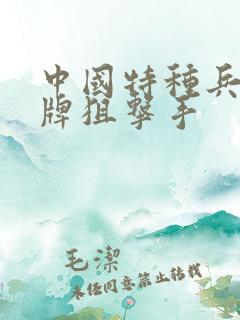 中國特種兵
牌狙擊手
毛潔
未经同意禁止转载